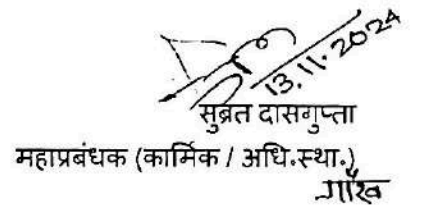 13.11.2024
सुब्रत दासगुप्ता
महाप्रबंधक (कार्मिक / अधि.स्था.)